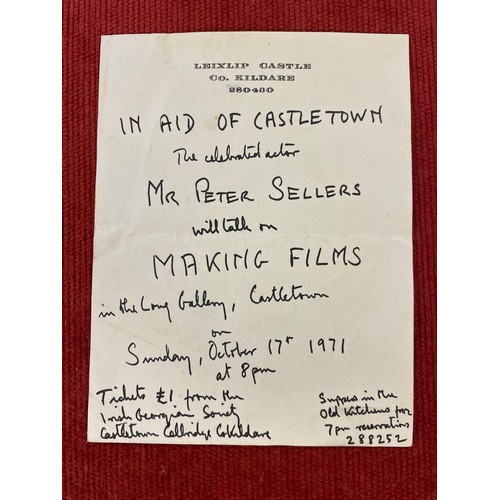 LEIXLIP CASTLE
CO. KILDARE
280430
IN AID OF CASTLETOWN
The celebrated actor
MR PETER SELLERS
will talk on
MAKING FILMS
in the Long Gallery, Castletown
on
Sunday, October 17th 1971
at 8pm
Tickets £1 from the
Irish Georgian Society
Castletown Celbridge Co Kildare
Suppers in the
Old Kitchens from
7pm reservations
288252